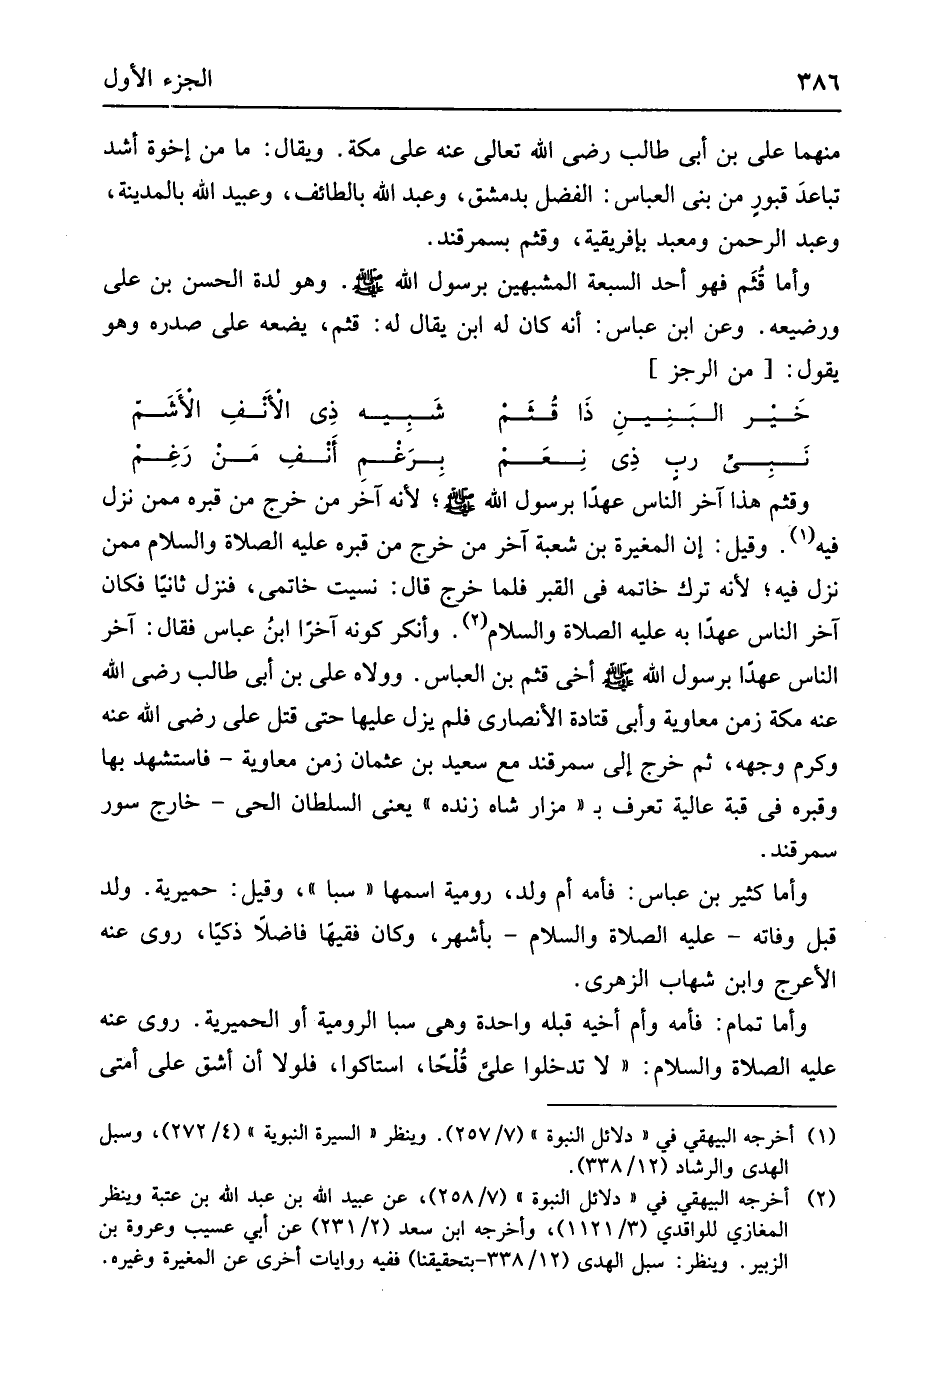 ٣٨٦ الجزء الأول
منهما على بن أبى طالب رضى الله تعالى عنه على مكة. ويقال: ما من إخوة أشد
تباعدَ قبورٍ من بنى العباس: الفضل بدمشق، وعبد الله بالطائف، وعبيد الله بالمدينة،
وعبد الرحمن ومعبد بإفريقية، وقثم بسمرقند.
وأما قُثَم فهو أحد السبعة المشبهين برسول الله ﷺ. وهو لدة الحسن بن على
ورضيعه. وعن ابن عباس: أنه كان له ابن يقال له: قثم، يضعه على صدره وهو
يقول: [ من الرجز ]
خَـــيْـــر الـــبَـــنِـــيـــنِ ذَا قُـــثَـــمْ شَـــبِـــيـــه ذِى الْأَنْـــفِ الْأَشَـــمّ
نَـــبِـــىْ ربٍ ذِى نِـــعَـــمْ بِـــرَغْـــمِ أَنْـــفِ مَـــنْ رَغِـــمْ
وقثم هذا آخر الناس عهدًا برسول الله ﷺ؛ لأنه آخَر من خرج من قبره ممن نزل
فيه(١). وقيل: إن المغيرة بن شعبة آخر من خرج من قبره عليه الصلاة والسلام ممن
نزل فيه؛ لأنه ترك خاتمه فى القبر فلما خرج قال: نسيت خاتمى، فنزل ثانيًا فكان
آخر الناس عهدًا به عليه الصلاة والسلام(٢). وأنكر كونه آخرًا ابنُ عباس فقال: آخر
الناس عهدًا برسول الله ﷺ أخى قثم بن العباس. وولاه على بن أبى طالب رضى الله
عنه مكة زمن معاوية وأبى قتادة الأنصارى فلم يزل عليها حتى قتل على رضى الله عنه
وكرم وجهه، ثم خرج إلى سمرقند مع سعيد بن عثمان زمن معاوية - فاستشهد بها
وقبره فى قبة عالية تعرف بـ « مزار شاه زنده » يعنى السلطان الحى - خارج سور
سمرقند.
وأما كثير بن عباس: فأمه أم ولد، رومية اسمها « سبا »، وقيل: حميرية. ولد
قبل وفاته - عليه الصلاة والسلام - بأشهر، وكان فقيهًا فاضلاً ذكيًا، روى عنه
الأعرج وابن شهاب الزهرى.
وأما تمام: فأمه وأم أخيه قبله واحدة وهى سبا الرومية أو الحميرية. روى عنه
عليه الصلاة والسلام: « لا تدخلوا علىَّ قُلْحًا، استاكوا، فلولا أن أشق على أمتى
(١) أخرجه البيهقي في « دلائل النبوة » (٧/ ٢٥٧). وينظر « السيرة النبوية » (٤/ ٢٧٢)، وسبل
الهدى والرشاد (١٢/ ٣٣٨).
(٢) أخرجه البيهقي في « دلائل النبوة » (٧/ ٢٥٨)، عن عبيد الله بن عبد الله بن عتبة وينظر
المغازي للواقدي (٣/ ١١٢١)، وأخرجه ابن سعد (٢/ ٢٣١) عن أبي عسيب وعروة بن
الزبير. وينظر: سبل الهدى (١٢/ ٣٣٨-بتحقيقنا) ففيه روايات أخرى عن المغيرة وغيره.